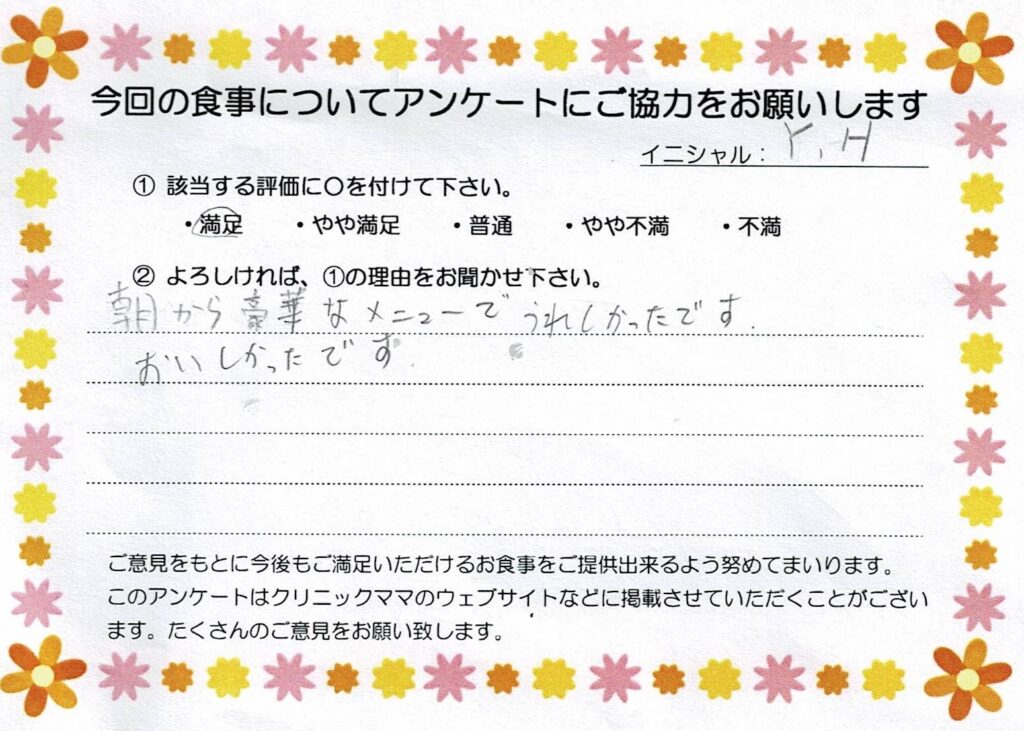 今回の食事についてアンケートにご協力をお願いします
イニシャル： Y, H
① 該当する評価に○を付けて下さい。
・満足 ・やや満足 ・普通 ・やや不満 ・不満
② よろしければ、①の理由をお聞かせ下さい。
朝から豪華なメニューでうれしかったです.
おいしかったです.
ご意見をもとに今後もご満足いただけるお食事をご提供出来るよう努めてまいります。
このアンケートはクリニックママのウェブサイトなどに掲載させていただくことがござい
ます。たくさんのご意見をお願い致します。